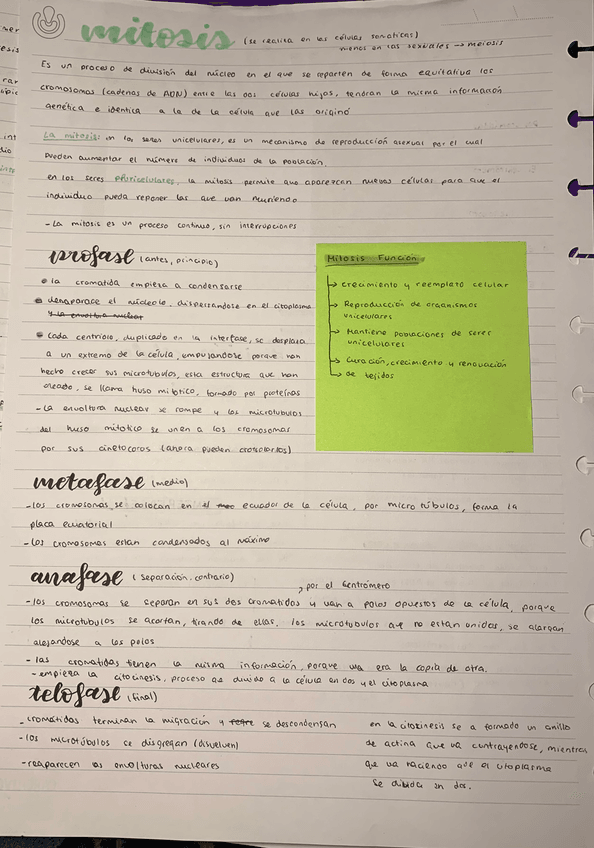 mitosis (se realiza en las células somáticas)
menos en las sexuales → meiosis
Es un proceso de división del núcleo en el que se reparten de forma equitativa los
cromosomas (cadenas de ADN) entre las dos células hijas, tendrán la misma información
genética e identica a la de la célula que las originó
La mitosis: en los seres unicelulares, es un mecanismo de reproducción asexual por el cual
pueden aumentar el número de individuos de la población.
en los seres pluricelulares, la mitosis permite que aparezcan nuevas células para que el
individuo pueda reponer las que van muriendo
- La mitosis es un proceso continuo, sin interrupciones
profase (antes, principio)
• la cromatida empieza a condensarse
• desaparace el nucleolo, dispersandose en el citoplasma
y la envoltura nuclear
• Cada centriolo, duplicado en la interfase, se desplaza
a un extremo de la célula, empujandose porque han
hecho crecer sus microtúbulos, esta estructura que han
creado, se llama huso mitótico, formado por proteínas
- La envoltura nuclear se rompe y los microtubulos
del huso mitotico se unen a los cromosomas
por sus cinetocoros (ahora pueden controlarlos)
Mitosis Función
→ crecimiento y reemplazo celular
→ Reproducción de organismos
unicelulares
→ Mantiene poblaciones de seres
unicelulares
→ Curación, crecimiento y renovación
→ de tejidos
metafase (medio)
- los cromosomas se colocan en el ecuador de la célula, por micro túbulos, forma la
placa ecuatorial
- Los cromosomas estan condensados al máximo
anafase (separación. contrario)
, por el centrómero
- los cromosomas se separan en sus dos cromatidas y van a polos opuestos de la célula, porque
los microtubulos se acortan, tirando de ellas, los microtubulos que no estan unidos, se alargan
alejandose a los polos
- las cromatidas tienen la misma información, porque una era la copia de otra.
- empieza la citocinesis, proceso que divide a la célula en dos y el citoplasma
telofase (final)
- cromátidas terminan la migración y se descondensan
- los microtúbulos se disgregan (disuelven)
- reaparecen las envolturas nucleares
en la citokinesis se a formado un anillo
de actina que va contrayendose, mientras
que va haciendo que el citoplasma
se divida en dos.